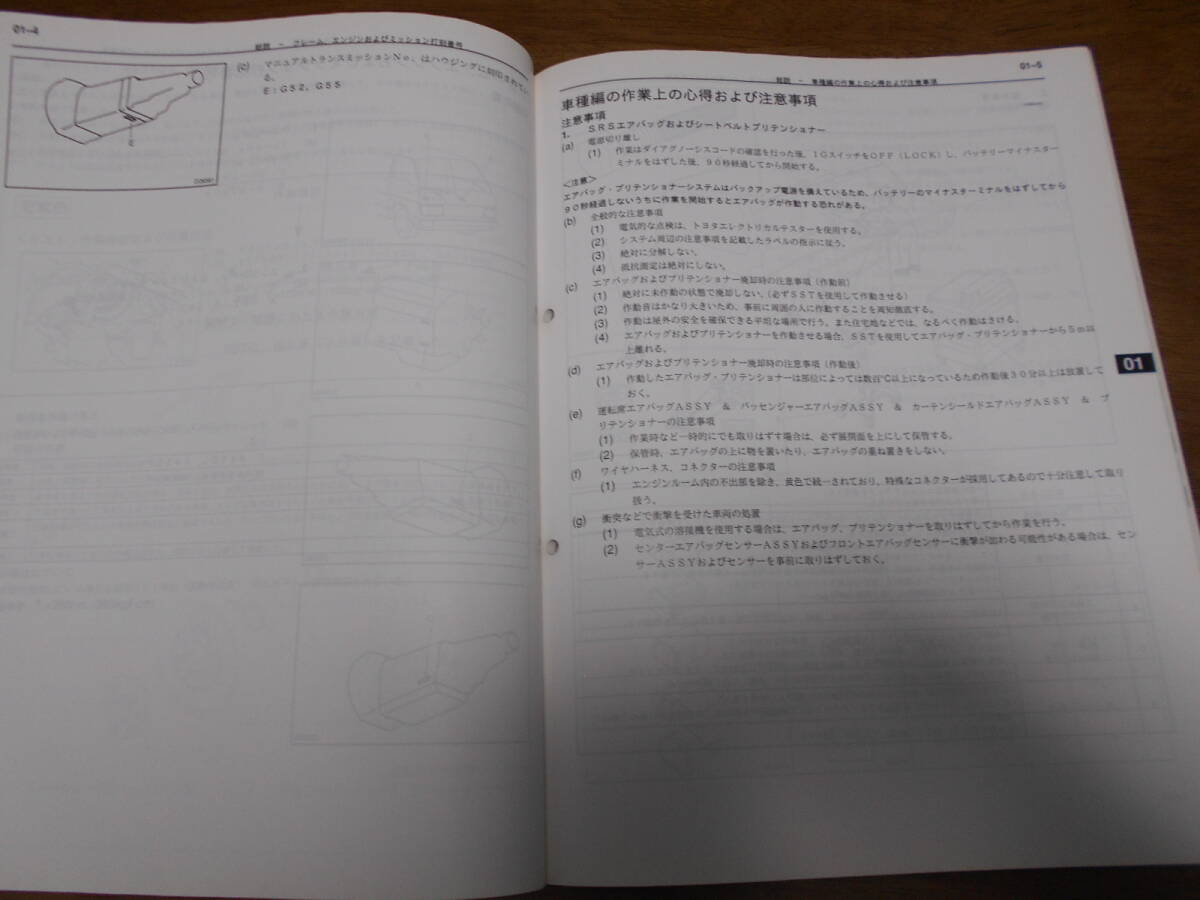 01-4
解説 - フレーム、エンジンおよびミッション打刻番号
(c) マニュアルトランスミッションNo. はハウジングに刻印されてい
る。
E:G52, G55
E
01-5
解説 - 車種編の作業上の心得および注意事項
車種編の作業上の心得および注意事項
注意事項
1. SRSエアバッグおよびシートベルトプリテンショナー
(a) 電源切り離し
(1) 作業はダイアグノーシスコードの確認を行った後、IGスイッチをOFF(LOCK)し、バッテリーマイナスター
ミナルをはずした後、90秒経過してから開始する。
<注意>
エアバッグ・プリテンショナーシステムはバックアップ電源を備えているため、バッテリーのマイナスターミナルをはずしてから
90秒経過しないうちに作業を開始するとエアバッグが作動する恐れがある。
(b) 全般的な注意事項
(1) 電気的な点検は、トヨタエレクトリカルテスターを使用する。
(2) システム周辺の注意事項を記載したラベルの指示に従う。
(3) 絶対に分解しない。
(4) 抵抗測定は絶対にしない。
(c) エアバッグおよびプリテンショナー廃却時の注意事項(作動前)
(1) 絶対に未作動の状態で廃却しない。(必ずSSTを使用して作動させる)
(2) 作動音はかなり大きいため、事前に周囲の人に作動することを周知徹底する。
(3) 作動は屋外の安全を確保できる平坦な場所で行う。また住宅地などでは、なるべく作動はさける。
(4) エアバッグおよびプリテンショナーを作動させる場合、SSTを使用してエアバッグ・プリテンショナーから5m以
上離れる。
(d) エアバッグおよびプリテンショナー廃却時の注意事項(作動後)
(1) 作動したエアバッグ・プリテンショナーは部位によっては数百℃以上になっているため作動後30分以上は放置して
おく。
(e) 運転席エアバッグASSY & パッセンジャーエアバッグASSY & カーテンシールドエアバッグASSY & プ
リテンショナーの注意事項
(1) 作業時など一時的にでも取りはずす場合は、必ず展開面を上にして保管する。
(2) 保管時、エアバッグの上に物を置いたり、エアバッグの重ね置きをしない。
(f) ワイヤハーネス、コネクターの注意事項
(1) エンジンルーム内の不出部を除き、黄色で統一されており、特殊なコネクターが採用してあるので十分注意して取り
扱う。
(g) 衝突などで衝撃を受けた車両の処置
(1) 電気式の溶接機を使用する場合は、エアバッグ、プリテンショナーを取りはずしてから作業を行う。
(2) センターエアバッグセンサーASSYおよびフロントエアバッグセンサーに衝撃が加わる可能性がある場合は、セン
サーASSYおよびセンサーを事前に取りはずしておく。
01